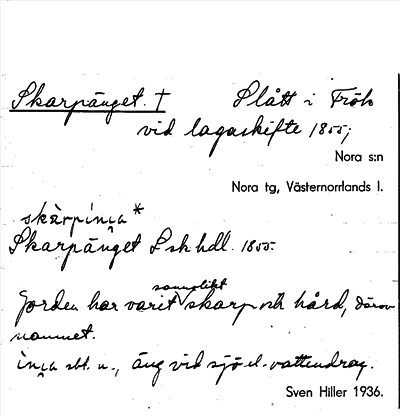 Skarpänget. † Slått i Frök
vid lagaskifte 1855;
Nora s:n
Nora tg, Västernorrlands l.
skàrpìnı̨a *
Skarpänget Lskhdl. 1855
Jorden har varit sannolikt skarp och hård, därav
namnet.
ìnı̨a sbt. n., äng vid sjö el. vattendrag.
Sven Hiller 1936.